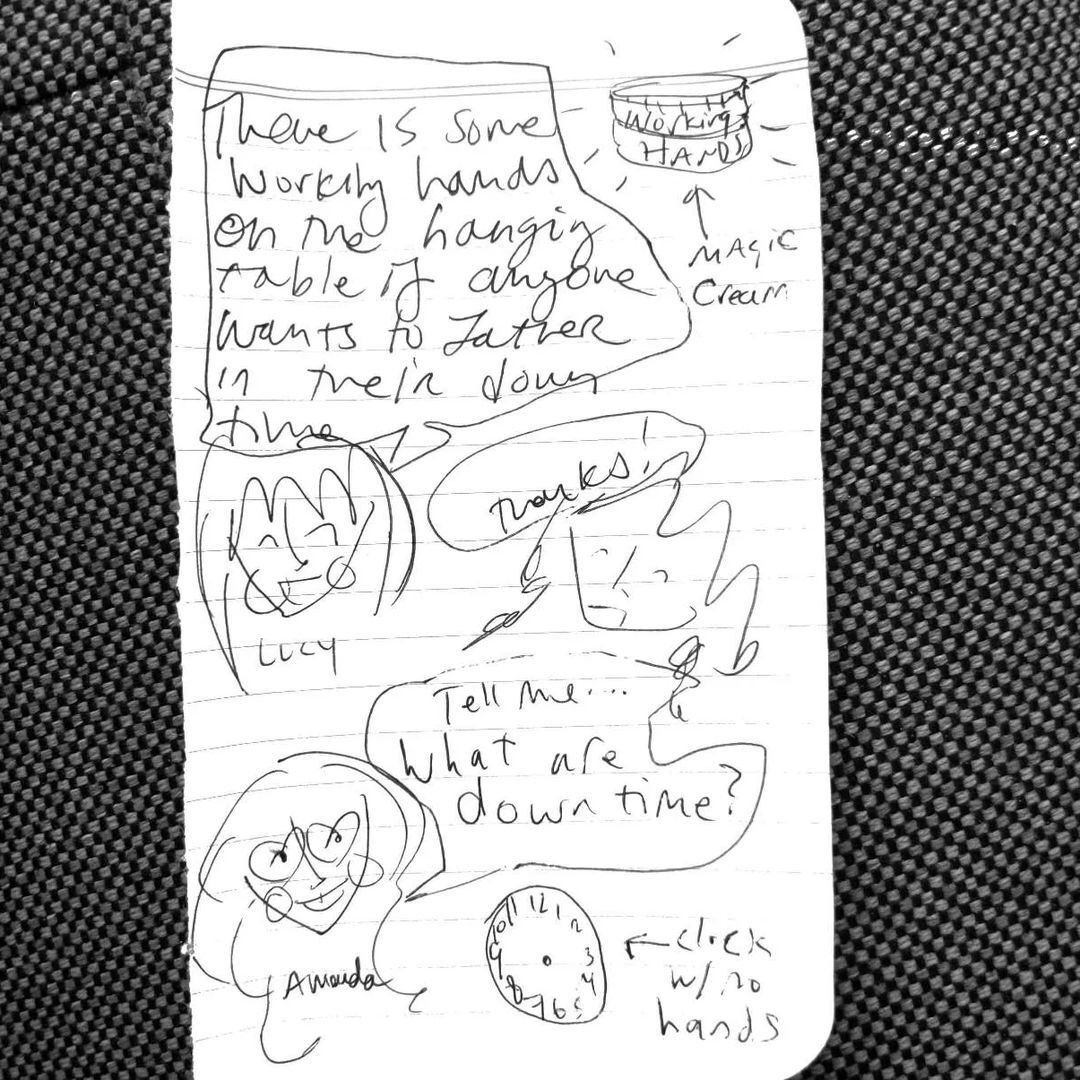 There is some
working hands
on the hanging
table if anyone
wants to lather
in their down
time
Working
HANDS
MAGIC
Cream
Thanks!
LUCY
Tell me...
What are
down time?
Amanda
12 1 2 3 4 5 6 7 8 9 10 11
clock
w/ no
hands